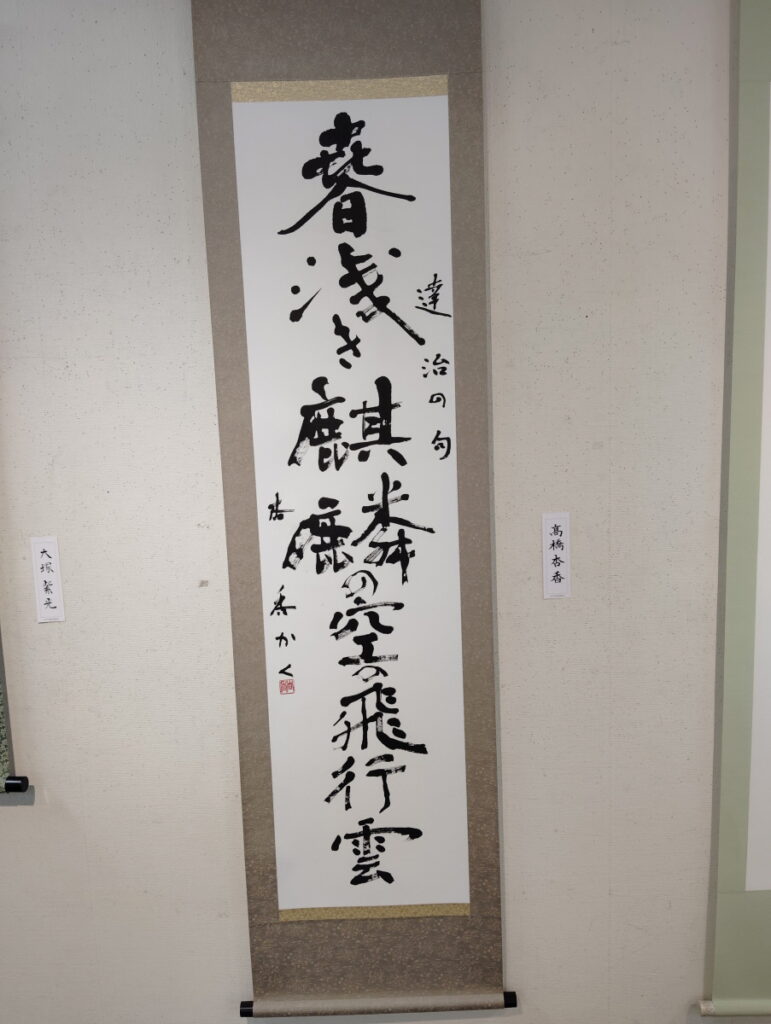 高橋杏香
達治の句
春浅き麒麟の空の飛行雲
杏香かく
大塚